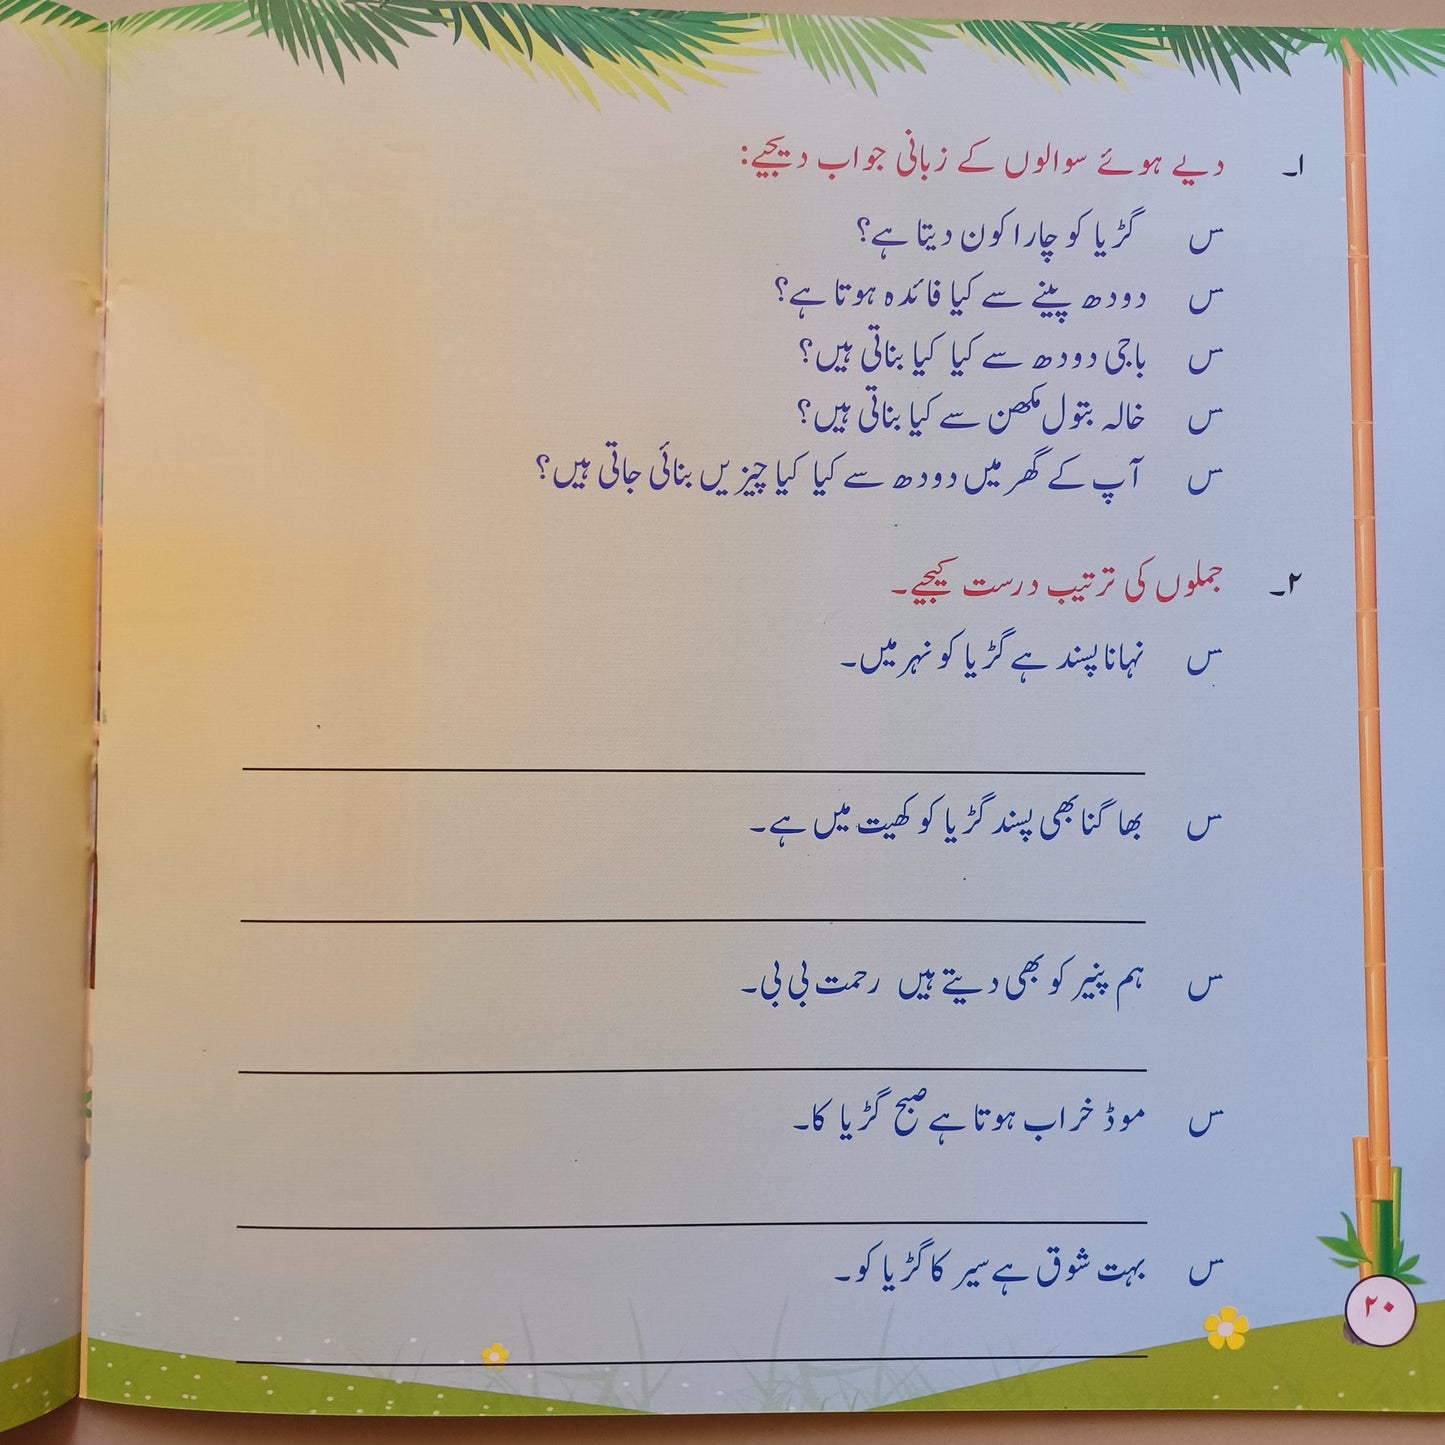 ۱۔ دیے ہوئے سوالوں کے زبانی جواب دیجیے:
س گڑیا کو چارا کون دیتا ہے؟
س دودھ پینے سے کیا فائدہ ہوتا ہے؟
س باجی دودھ سے کیا کیا بناتی ہیں؟
س خالہ بتول مکھن سے کیا بناتی ہیں؟
س آپ کے گھر میں دودھ سے کیا کیا چیزیں بنائی جاتی ہیں؟
۲۔ جملوں کی ترتیب درست کیجیے۔
س نہانا پسند ہے گڑیا کو نہر میں۔
س بھاگنا بھی پسند گڑیا کو کھیت میں ہے۔
س ہم پنیر کو بھی دیتے ہیں رحمت بی بی۔
س موڈ خراب ہوتا ہے صبح گڑیا کا۔
س بہت شوق ہے سیر کا گڑیا کو۔
۲۰